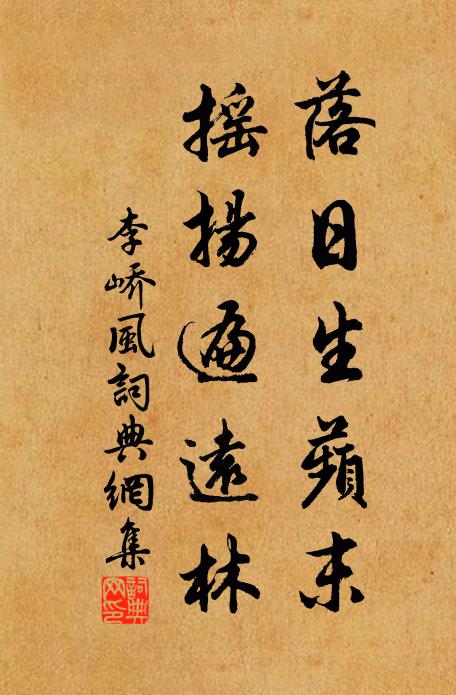 落日生蘋末
搖揚遍遠林
李嶠風詞典網集
詞典网印